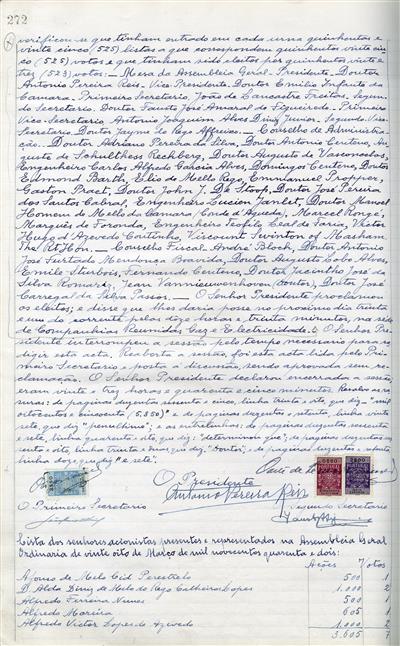 272
verificou se que tinham entrado em cada urna quinhentas e
vinte cinco (525) listas a que correspondem quinhentos vinte cin-
co (525) votos e que tinham sido eleitos por quinhentos vinte e
tres (523) votos: — Mesa da Assembleia Geral - Presidente - Doutor
Antonio Pereira Reis. Vice Presidente. Doutor Emilio Infante da
Camara. Primeiro Secretario, João de Lencastre Freitas, Segun-
do Secretario. Doutor Fausto José Amaral de Figueiredo. Primeiro
Vice Secretario Antonio Joaquim Alves Diniz Junior. Segundo Vice-
Secretario Doutor Jayme do Rego Affreixo. — Conselho de Administra-
ção. Doutor Adriano Pereira da Silva, Doutor Antonio Centeno, Au-
guste de Schulthess Rechberg, Doutor Augusto de Vasconcelos,
Engenheiro Carlos Alfredo Chosia Alves, Domingos Centeno, Doutor
Edmond Barth, Elio de Mello Rego, Emmanuel Propper,
Gaston Praet, Doutor John J. De Stoop, Doutor José Pereira
dos Santos Cabral, Engenheiro Lucien Janlet, Doutor Manoel
Homem de Mello da Camara (Conde d'Agueda), Marcel Rongé,
Marquês de Foronda, Engenheiro Teofilo Leal de Faria, Victor
Hugo d'Azevedo Coutinho, Viscount Swinton of Masham
The Rt. Hon — Conselho Fiscal. André Bloch, Doutor Antonio
José Furtado Mendonça Boavida, Doutor Augusto Lobo Alves,
Emile Sterbois, Fernando Centeno, Doutor Jacintho José da
Silva Romariz, Jean Vannieuwenhoven (Doutor), Doutor José
Carregal da Silva Passos. — O Senhor Presidente proclamou
os eleitos; e disse que lhes daria posse no proximo dia trinta
e um do corrente pelas doze horas e trinta minutos, na séde
de Companhias Reunidas Gaz e Electricidade. O Senhor Pre-
sidente interrompeu a sessão pelo tempo necessario para re-
digir esta acta. Reaberta a sessão foi esta acta lida pelo Pri-
meiro Secretario e posta á discussão, sendo aprovada sem re-
clamação. O Senhor Presidente declarou encerrada a sessão
eram vinte e tres horas e quarenta e cinco minutos. Resalvo as
rasuras: de paginas duzentos sessenta e cinco, linha trinta e oito, que diz, "mil
oitocentos e cincoenta (5,850)" e de paginas duzentos e setenta, linha vinte
sete, que diz e as entrelinhas: de paginas duzentos sessenta
e sete, linha quarenta e oito, que diz: "determinou que"; de paginas duzentos ses-
senta e oito, linha trinta e duas que diz, "Doutor"; de paginas duzentos e setenta
linha doze que diz "e sete".
O Presidente
Antonio Pereira Reis
O Primeiro Secretario
O segundo Secretario
Lista dos senhores acionistas presentes e representados na Assembleia Geral
Ordinaria de vinte oito de Março de mil novecentos quarenta e dois:
Acções Votos
Afonso de Melo Cid Perestrelo 500 1
D. Alda Diniz de Melo do Rego Calheiros Lopes 1.000 2
Alfredo Ferreira Nunes 500 1
Alfredo Moreira 605 1
Alfredo Victor Lopes de Azevedo 1.000 2
3.605 7